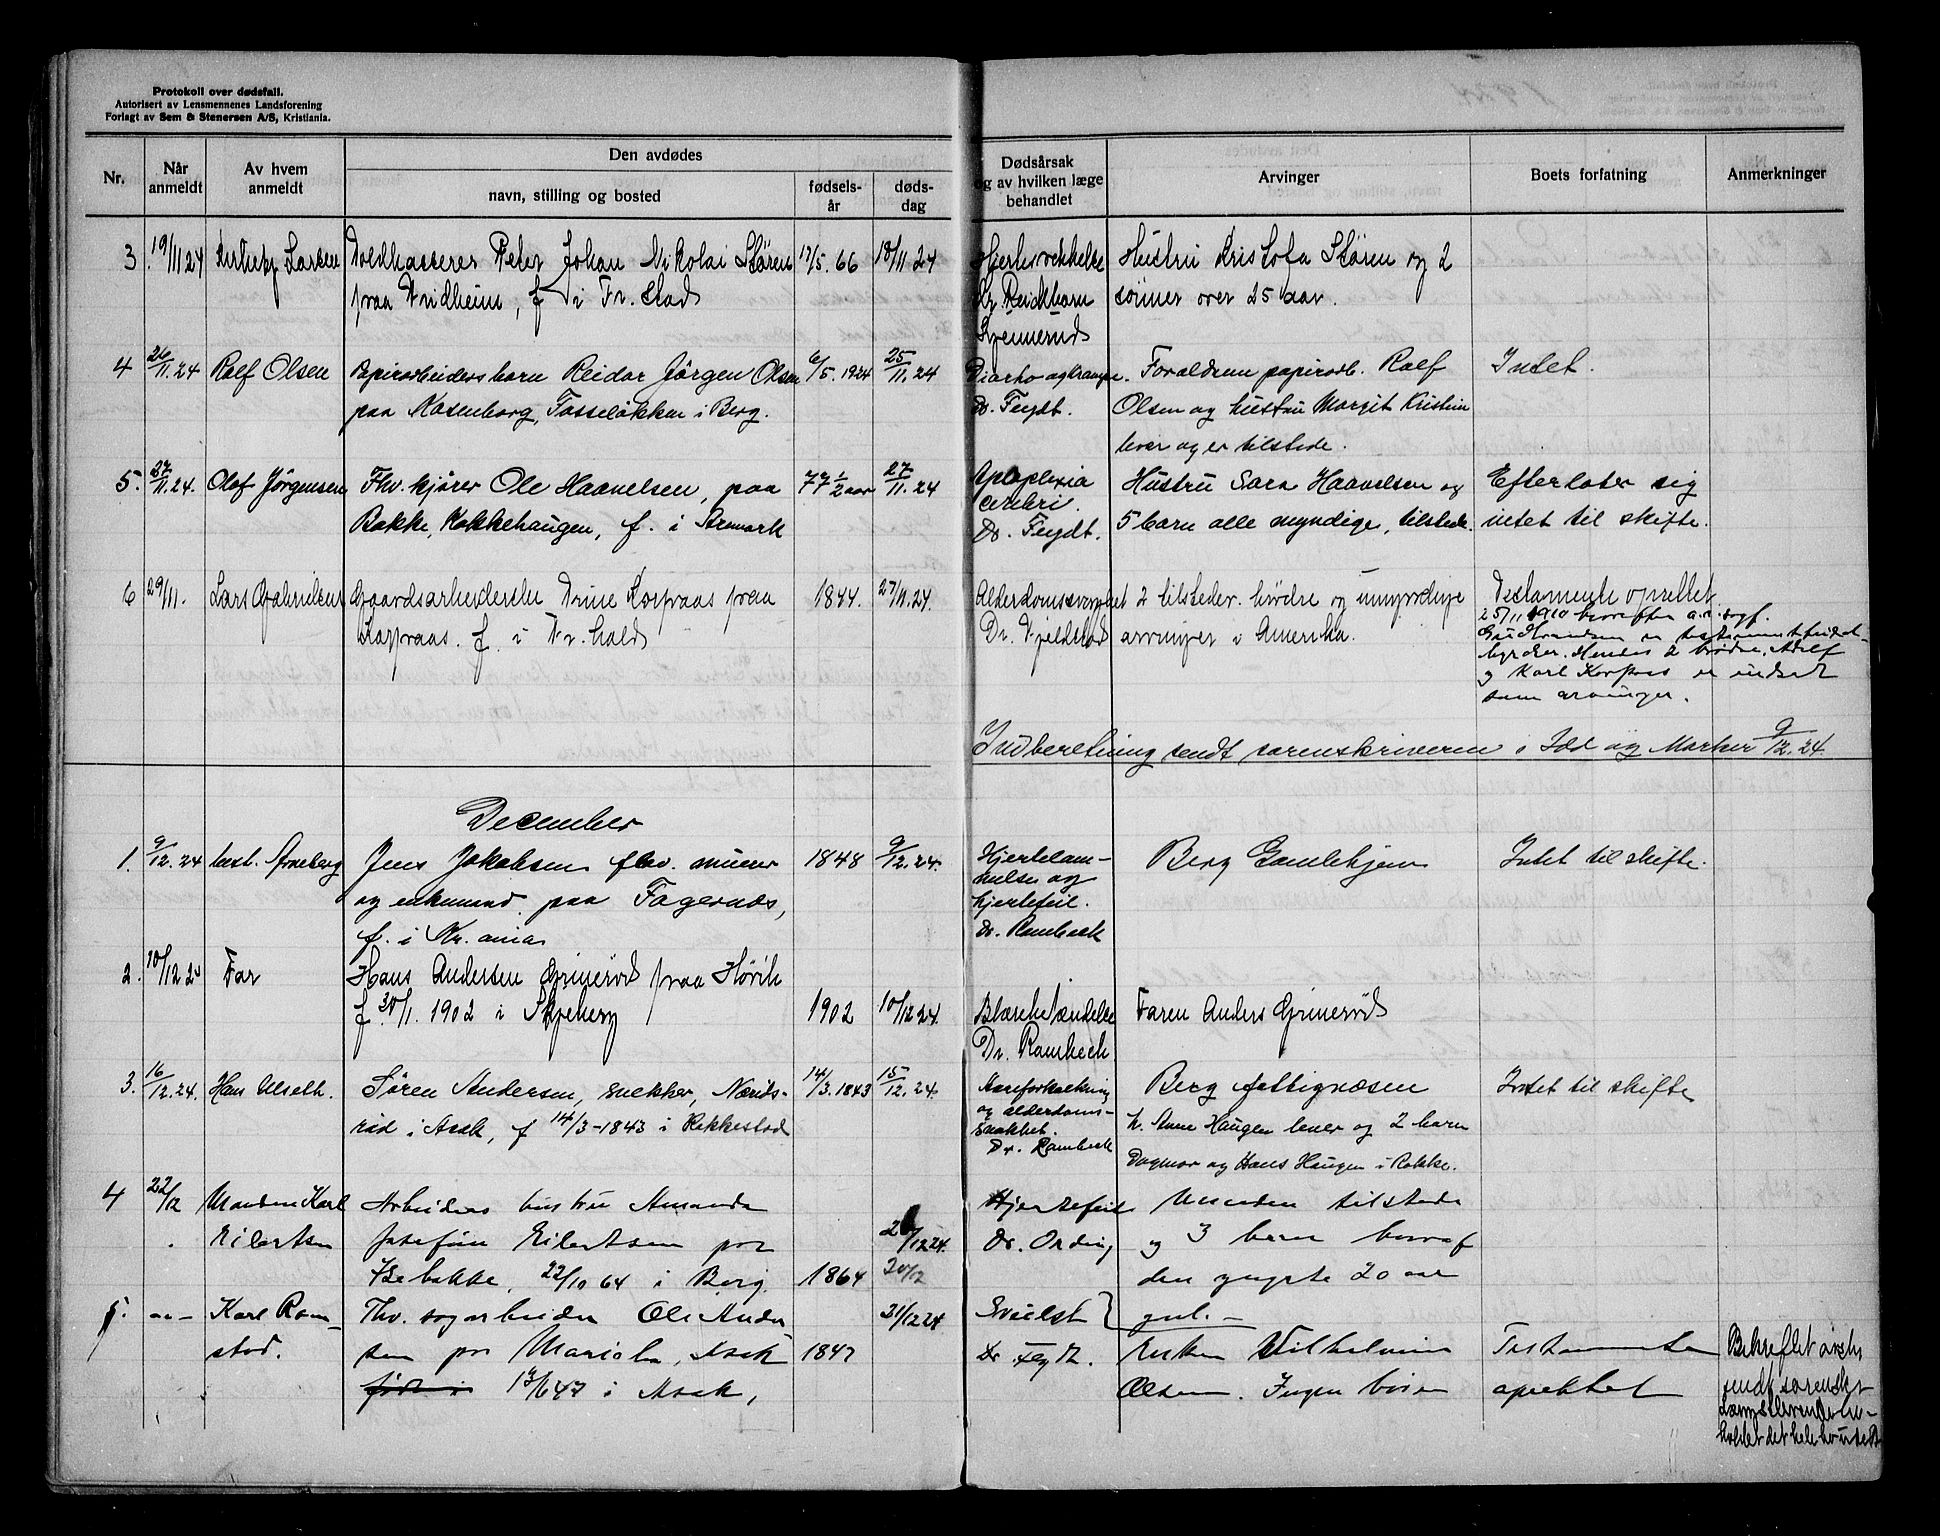 Protokoll over dødsfall.
Autorisert av Lensmennenes Landsforening
Forlagt av Sem & Stenersen A/S, Kristiania.
Nr.
Når anmeldt
Av hvem anmeldt
Den avdødes
navn, stilling og bosted
fødsels-år
døds-dag
Dødsårsak og av hvilken læge behandlet
Arvinger
Boets forfatning
Anmerkninger
3. 19/11 24 Larsen
Peter Johan Nikolai Støren
paa Fridheim, f i Fr.stad
17/5. 66
18/11 24
Dr Reichborn
Kjennerud
Hustru Kristofa Støren og 2
sønner over 25 aar.
4 26/11. 24 Rolf Olsen
Papirarbeiders barn Reidar Jørgen Olsen
paa Rosenborg, Tosseløkken i Berg.
6/5. 1924
25/11. 24
Diarho og krampe.
Dr. Feydt.
Forældrene papirarb. Rolf
Olsen og hustru Margit Kristin
lever og er tilstede.
Intet.
5. 27/11. 24. Olof Jørgensen
Fhv. kjører Ole Haavelsen, paa
Bakke, Kokkehaugen, f. i Aremark
77 1/2 aar
27/11. 24
Apoplexia
cerebri.
Dr. Feydt.
Hustru Sara Haavelsen og
5 barn alle myndige, tilstede.
Efterlater sig
intet til skifte.
6 29/11. Lars Gabrielsen
Gaardsarbeiderske Trine Korpraas paa
Korpraas. f. i Fr.hald
1844.
27/11. 24.
Alderdomssvaghet
Dr. Fjeldstad
2 tilsteder. brødre og umyndige
arvinger i Amerika.
Testamente oprettet
25/11 1910 hvorefter
Gudbrandsen er
Hendes 2 brødre, Adolf
og Karl Korpraas er indsat
som arvinger.
Indberetning sendt sorenskriveren i Idd og Marker 9/12. 24.
December
1. 9/12. 24 best. Arneberg
Jens Jakobsen fhv. murer
og enkemand paa Fagernæs,
f. i Kr.ania
1848
9/12. 24.
Hjertelam-
melse og
hjertefeil.
Dr. Rambeck
Berg Gamlehjem
Intet til skifte.
2. 10/12 24 Far
Hans Andersen Grimerød paa Høvik
f. 30/1. 1902 i Skjeberg
1902
10/12 24.
Blærebetændelse
Dr. Rambeck
Faren Anders Grimerød
3. 16/12. 24. Hans Ulseth.
Søren Andersen, snekker, Nærids-
rød i Asak, f 14/3-1843 i Rakkestad
14/3. 1843
15/12. 24.
Aareforkalkning
og alderdoms-
svakhet.
Dr. Rambeck
Berg fattigvæsen
h. Anne Haugen lever og 2 barn
Dagmar og Hans Haugen i Rokke.
Intet til skifte
4 22/12 Manden Karl
Eilertsen
Arbeiders hustru Amanda
Josefine Eilertsen paa
Isebakke, 22/10 64 i Berg.
1864
20/12 24.
20/12
Hjertefeil
Dr. Ording
Manden tilstede
og 3 barn hvoraf
den yngste 20 aar
5. - " - Karl Ram-
stad.
Fhv. sagarbeider Ole Ander
sen paa Mariaho, Asak
født i 17/6 47 i Asak,
1847
21/12 24
Svulst
Dr Feydt.
Enken Vilhelmine
Olsen. Ingen barn
Testamente
oprettet
Bekræftet avskr
sendt sorenskr
Længstlevende be-
holder det hele bo uskift